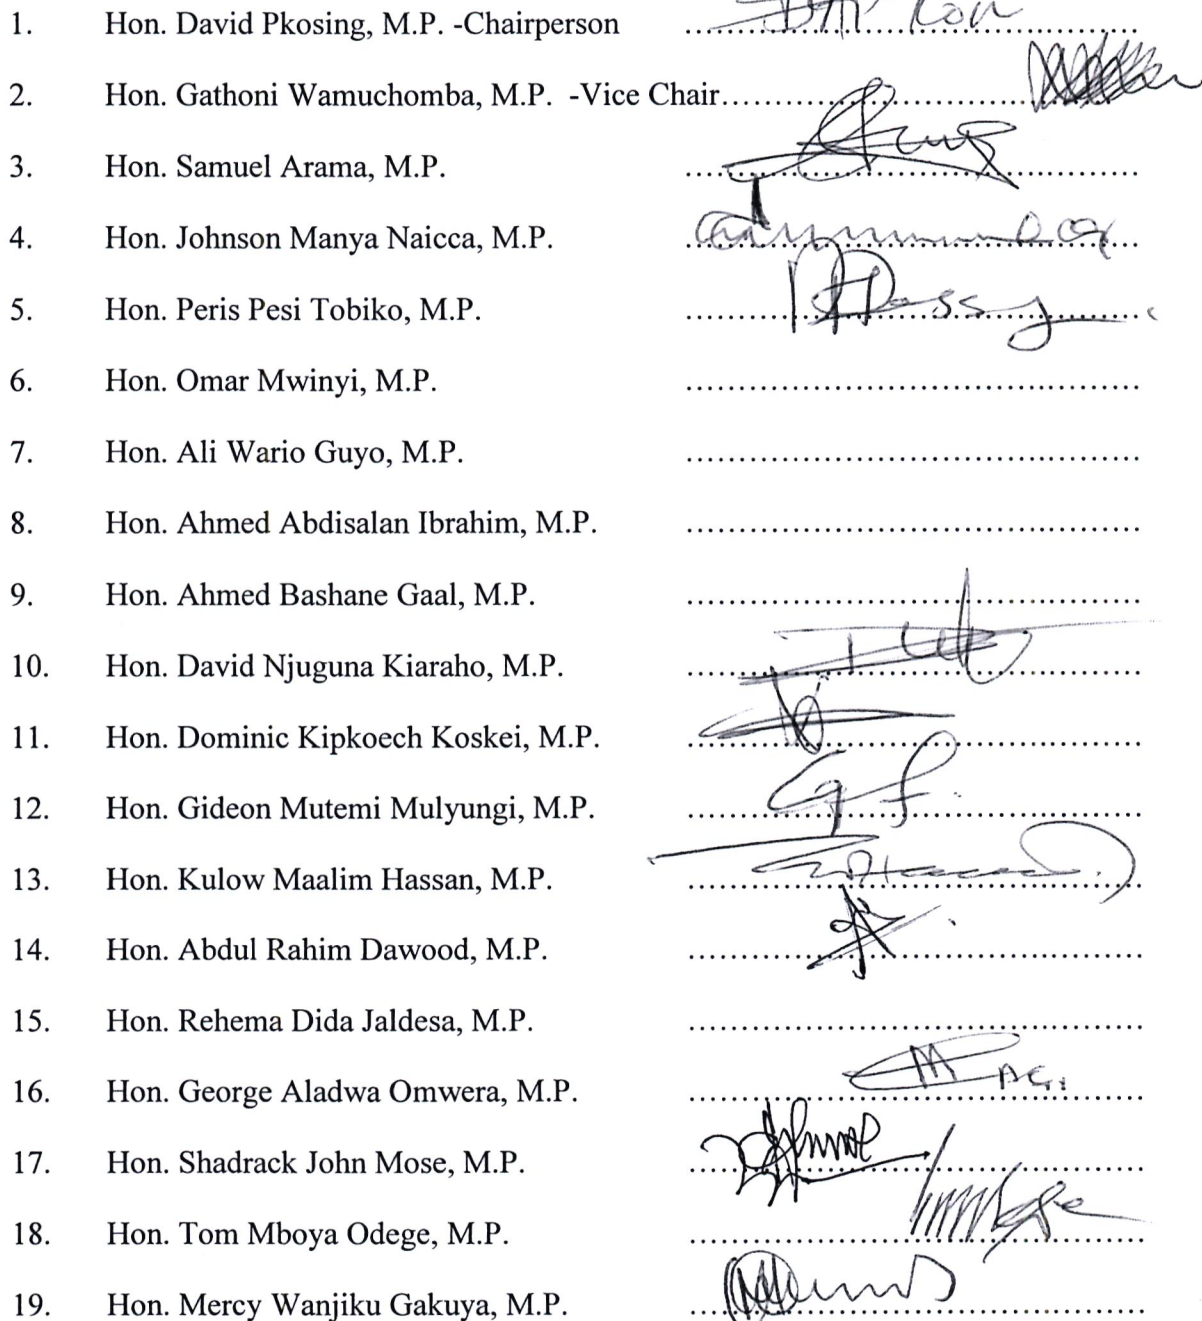 1. Hon. David Pkosing, M.P. -Chairperson ........................................
2. Hon. Gathoni Wamuchomba, M.P. -Vice Chair........................................
3. Hon. Samuel Arama, M.P. ........................................
4. Hon. Johnson Manya Naicca, M.P. ........................................
5. Hon. Peris Pesi Tobiko, M.P. ........................................
6. Hon. Omar Mwinyi, M.P. ........................................
7. Hon. Ali Wario Guyo, M.P. ........................................
8. Hon. Ahmed Abdisalan Ibrahim, M.P. ........................................
9. Hon. Ahmed Bashane Gaal, M.P. ........................................
10. Hon. David Njuguna Kiaraho, M.P. ........................................
11. Hon. Dominic Kipkoech Koskei, M.P. ........................................
12. Hon. Gideon Mutemi Mulyungi, M.P. ........................................
13. Hon. Kulow Maalim Hassan, M.P. ........................................
14. Hon. Abdul Rahim Dawood, M.P. ........................................
15. Hon. Rehema Dida Jaldesa, M.P. ........................................
16. Hon. George Aladwa Omwera, M.P. ........................................
17. Hon. Shadrack John Mose, M.P. ........................................
18. Hon. Tom Mboya Odege, M.P. ........................................
19. Hon. Mercy Wanjiku Gakuya, M.P. ........................................